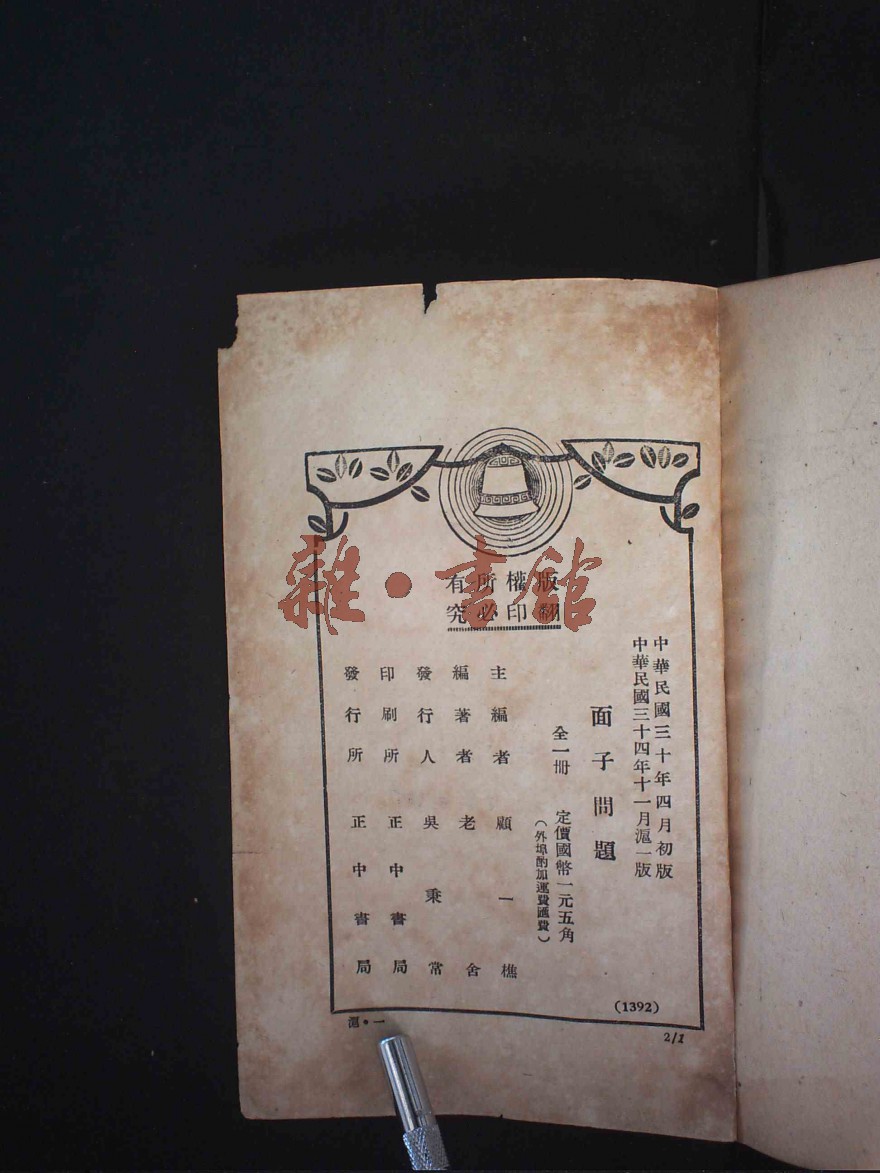 雜·書館
版權所有
翻印必究
中華民國三十年四月初版
中華民國三十四年十一月滬一版
面子問題
全一冊 定價國幣一元五角
（外埠酌加運費匯費）
主編者 顧一樵
編著者 老舍
發行人 吳秉常
印刷所 正中書局
發行所 正中書局
(1392)
滬·一
2/1